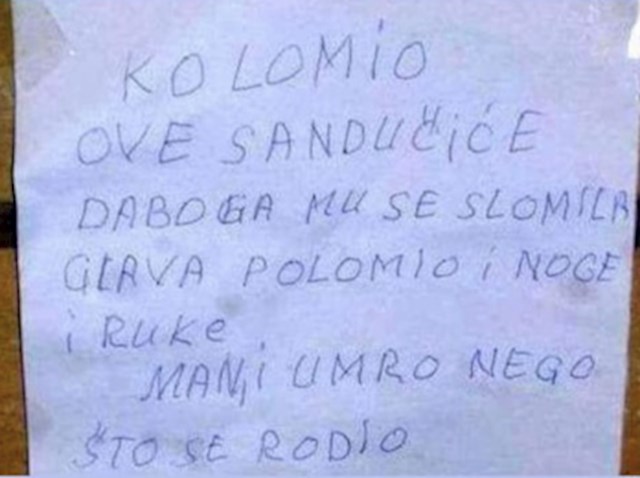 KO LOMiO
OVE SANDUČiĆE
DABOGA MU SE SLOMILA
GLAVA POLOMIO i NOGE
i RUKe
MANJi UMRO NEGO
ŠTO SE RODIO